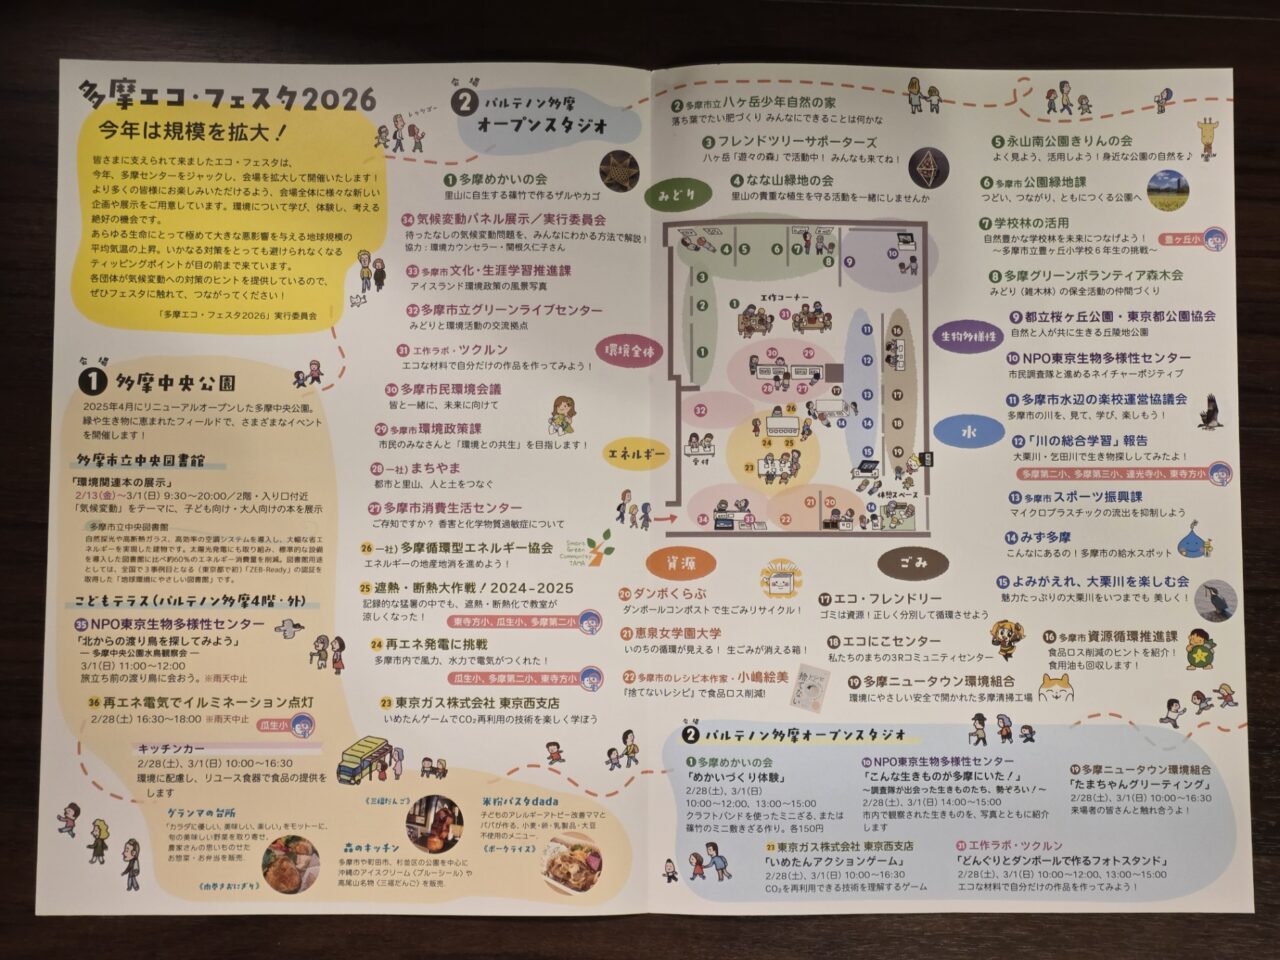 多摩エコ・フェスタ2026
今年は規模を拡大！
皆さまに支えられて来ましたエコ・フェスタは、
今年、多摩センターをジャックし、会場を拡大して開催いたします！
より多くの皆様にお楽しみいただけるよう、会場全体に様々な新しい
企画や展示をご用意しています。環境について学び、体験し、考える
絶好の機会です。
あらゆる生命にとって極めて大きな悪影響を与える地球規模の
平均気温の上昇。いかなる対策をとっても避けられなくなる
ティッピングポイントが目の前まで来ています。
各団体が気候変動への対策のヒントを提供しているので、
ぜひフェスタに触れて、つながってください！
「多摩エコ・フェスタ2026」実行委員会
会場
1 多摩中央公園
2025年4月にリニューアルオープンした多摩中央公園。
緑や生き物に恵まれたフィールドで、さまざまなイベント
を開催します！
多摩市立中央図書館
「環境関連本の展示」
2/13(金)〜3/1(日) 9:30〜20:00／2階・入り口付近
「気候変動」をテーマに、子ども向け・大人向けの本を展示
多摩市立中央図書館
自然採光や高断熱ガラス、高効率の空調システムを導入し、大幅な省エ
ネルギーを実現した建物です。太陽光発電にも取り組み、標準的な設備
を導入した図書館に比べ約60%のエネルギー消費量を削減。図書館用途
としては、全国で3事例目となる（東京都で初）「ZEB-Ready」の認証を
取得した「地球環境にやさしい図書館」です。
こどもテラス(パルテノン多摩4階・外)
35 NPO東京生物多様性センター
「北からの渡り鳥を探してみよう」
― 多摩中央公園水鳥観察会 ―
3/1(日) 11:00〜12:00
旅立ち前の渡り鳥に会おう。※雨天中止
36 再エネ電気でイルミネーション点灯
2/28(土) 16:30〜18:00 ※雨天中止
瓜生小
キッチンカー
2/28(土)、3/1(日) 10:00〜16:30
環境に配慮し、リユース食器で食品の提供を
します
グランマの台所
「カラダに優しい、美味しい、楽しい」をモットーに、
旬の美味しい野菜を取り寄せ、
農家さんの思いものせた
お惣菜・お弁当を販売。
《肉巻きおにぎり》
《三福だんご》
森のキッチン
多摩市や町田市、杉並区の公園を中心に
沖縄のアイスクリーム〈ブルーシール〉や
高尾山名物〈三福だんご〉を販売。
米粉パスタdada
子どものアレルギーアトピー改善ママと
パパが作る、小麦・卵・乳製品・大豆
不使用のメニュー。
《ポークライス》
会場
2 パルテノン多摩
オープンスタジオ
1 多摩めかいの会
里山に自生する篠竹で作るザルやカゴ
34 気候変動パネル展示／実行委員会
待ったなしの気候変動問題を、みんなにわかる方法で解説！
協力：環境カウンセラー・関根久仁子さん
33 多摩市文化・生涯学習推進課
アイスランド環境政策の風景写真
32 多摩市立グリーンライブセンター
みどりと環境活動の交流拠点
31 工作ラボ・ツクルン
エコな材料で自分だけの作品を作ってみよう！
30 多摩市民環境会議
皆と一緒に、未来に向けて
29 多摩市環境政策課
市民のみなさんと「環境との共生」を目指します！
28 一社）まちやま
都市と里山、人と土をつなぐ
27 多摩市消費生活センター
ご存知ですか？ 香害と化学物質過敏症について
26 一社）多摩循環型エネルギー協会
エネルギーの地産地消を進めよう！
Smart
Green
Community
TAMA
25 遮熱・断熱大作戦！2024-2025
記録的な猛暑の中でも、遮熱・断熱化で教室が
涼しくなった！
東寺方小、瓜生小、多摩第二小
24 再エネ発電に挑戦
多摩市内で風力、水力で電気がつくれた！
瓜生小、多摩第二小、東寺方小
23 東京ガス株式会社 東京西支店
いめたんゲームでCO₂再利用の技術を楽しく学ぼう
2 多摩市立八ヶ岳少年自然の家
落ち葉でたい肥づくり みんなにできることは何かな
3 フレンドツリーサポーターズ
八ヶ岳「遊々の森」で活動中！ みんなも来てね！
4 なな山緑地の会
里山の貴重な植生を守る活動を一緒にしませんか
みどり
環境全体
エネルギー
資源
ごみ
水
生物多様性
工作コーナー
受付
休憩スペース
5 永山南公園きりんの会
よく見よう、活用しよう！身近な公園の自然を♪
6 多摩市公園緑地課
つどい、つながり、ともにつくる公園へ
7 学校林の活用
自然豊かな学校林を未来につなげよう！
〜多摩市立豊ヶ丘小学校6年生の挑戦〜
豊ヶ丘小
8 多摩グリーンボランティア森木会
みどり（雑木林）の保全活動の仲間づくり
9 都立桜ヶ丘公園・東京都公園協会
自然と人が共に生きる丘陵地公園
10 NPO東京生物多様性センター
市民調査隊と進めるネイチャーポジティブ
11 多摩市水辺の楽校運営協議会
多摩市の川を、見て、学び、楽しもう！
12 「川の総合学習」報告
大栗川・乞田川で生き物探ししてみたよ！
多摩第二小、多摩第三小、連光寺小、東寺方小
13 多摩市スポーツ振興課
マイクロプラスチックの流出を抑制しよう
14 みず多摩
こんなにあるの！多摩市の給水スポット
15 よみがえれ、大栗川を楽しむ会
魅力たっぷりの大栗川をいつまでも 美しく！
20 ダンボくらぶ
ダンボールコンポストで生ごみリサイクル！
21 恵泉女学園大学
いのちの循環が見える！ 生ごみが消える箱！
22 多摩市のレシピ本作家・小嶋絵美
『捨てないレシピ』で食品ロス削減！
17 エコ・フレンドリー
ゴミは資源！正しく分別して循環させよう
18 エコにこセンター
私たちのまちの3Rコミュニティセンター
19 多摩ニュータウン環境組合
環境にやさしい安全で開かれた多摩清掃工場
16 多摩市資源循環推進課
食品ロス削減のヒントを紹介！
食用油も回収します！
会場
2 パルテノン多摩オープンスタジオ
1 多摩めかいの会
「めかいづくり体験」
2/28(土)、3/1(日)
10:00〜12:00、13:00〜15:00
クラフトバンドを使ったミニざる、または
篠竹のミニ敷きざる作り。各150円
10 NPO東京生物多様性センター
「こんな生きものが多摩にいた！」
〜調査隊が出会った生きものたち、勢ぞろい！〜
2/28(土)、3/1(日) 14:00〜15:00
市内で観察された生きものを、写真とともに紹介
します
19 多摩ニュータウン環境組合
「たまちゃんグリーティング」
2/28(土)、3/1(日) 10:00〜16:30
来場者の皆さんと触れ合うよ！
23 東京ガス株式会社 東京西支店
「いめたんアクションゲーム」
2/28(土)、3/1(日) 10:00〜16:30
CO₂を再利用できる技術を理解するゲーム
31 工作ラボ・ツクルン
「どんぐりとダンボールで作るフォトスタンド」
2/28(土)、3/1(日) 10:00〜12:00、13:00〜15:00
エコな材料で自分だけの作品を作ってみよう！